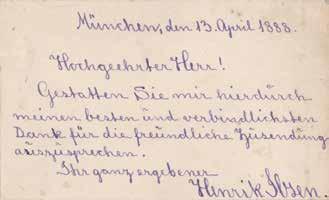 München, den 13. April 1888.
Hochgeehrter Herr!
Gestatten Sie mir hierdurch
meinen besten und verbindlichsten
Dank für die freundliche Zusendung
auszusprechen.
Ihr ganz ergebener
Henrik Ibsen.